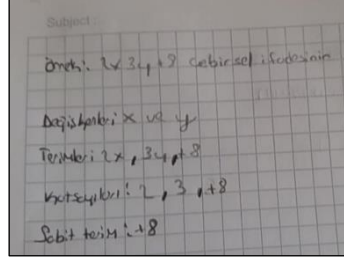 Subject:
Örnek: 2x 3y +8 Cebirsel ifadesinin
Değişkenleri x ve y
Terimleri: 2x, 3y, +8
Katsayıları: 2, 3, +8
Sabit terim: +8